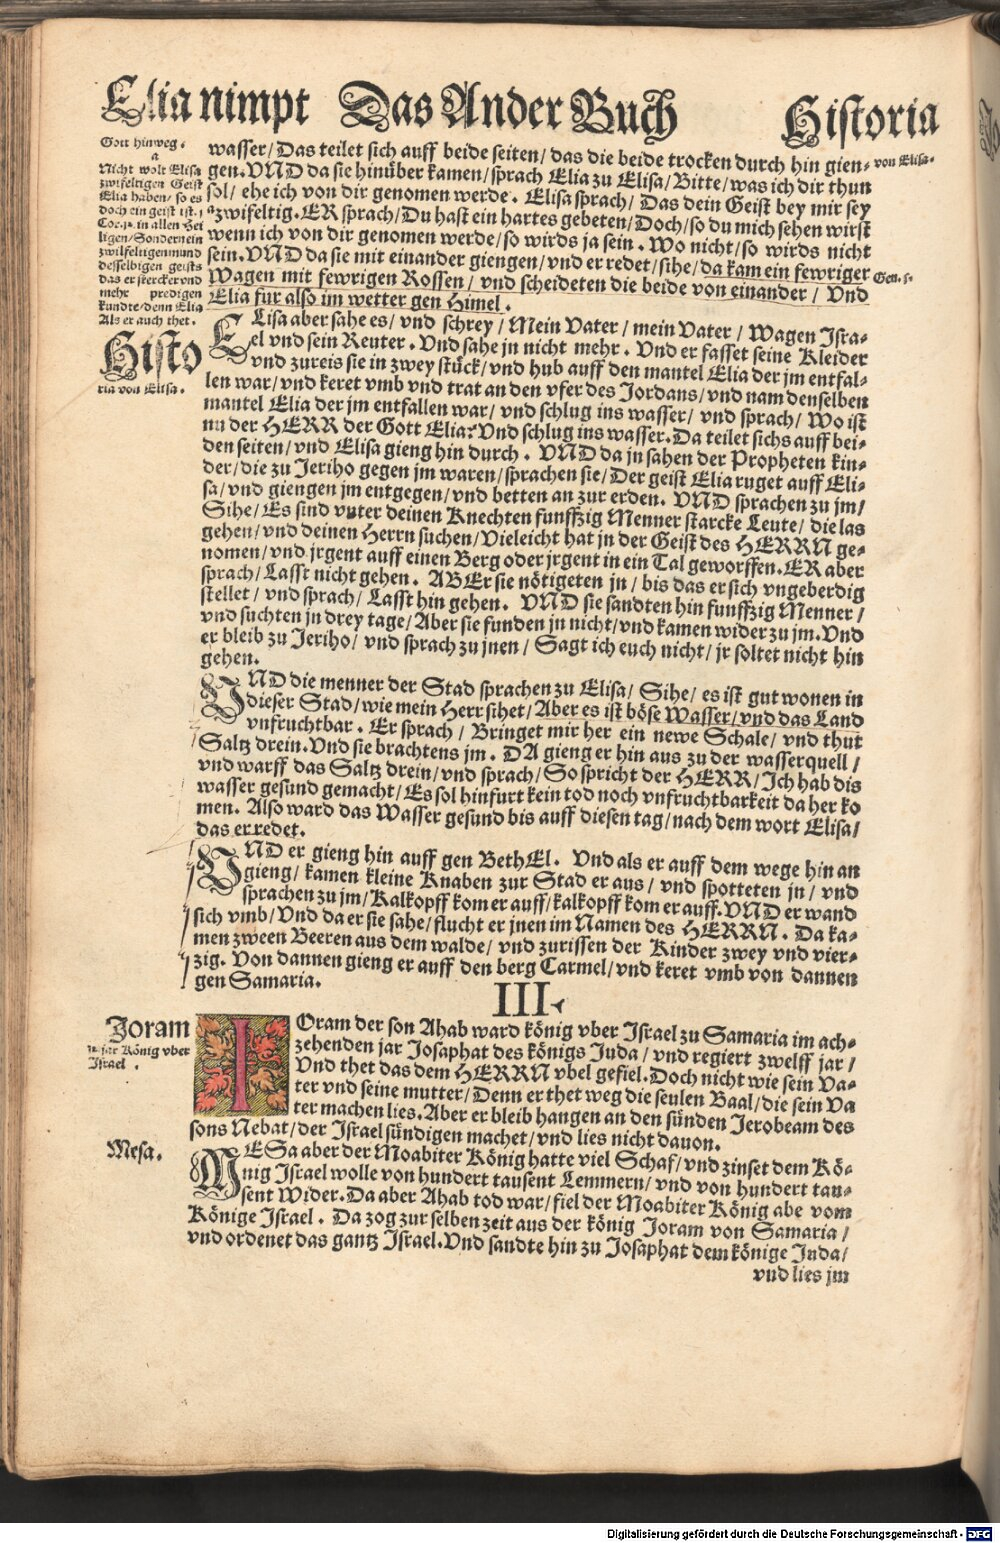 Elia nimpt Das Ander Buch Historia
Gott hinweg.
a
Nicht wolt Elisa
zwifeltigen Geist
Elia haben/ so es
doch ein geist ist. 1.
Cor. 12. in allen Hei
ligen/ Sondern ein
zwilfeltigen mund
desselbigen geists
das er stercker vnd
mehr predigen
kundte/ denn Elia
Als er auch thet.
Histo
ria von Elisa.
von Elisa.
wasser/ Das teilet sich auff beide seiten/ das die beide trocken durch hin gien-
gen. VND da sie hinüber kamen/ sprach Elia zu Elisa/ Bitte/ was ich dir thun
sol/ ehe ich von dir genomen werde. Elisa sprach/ Das dein Geist bey mir sey
a zwifeltig. ER sprach/ Du hast ein hartes gebeten/ Doch/ so du mich sehen wirst
wenn ich von dir genomen werde/ so wirds ja sein. Wo nicht/ so wirds nicht
sein. VND da sie mit einander giengen/ vnd er redet/ sihe/ da kam ein fewriger
Gen. 5.
Wagen mit fewrigen Rossen/ vnd scheideten die beide von einander/ Vnd
Elia fur also im wetter gen Himel.
ELisa aber sahe es/ vnd schrey/ Mein Vater/ mein Vater/ Wagen Isra-
el vnd sein Reuter. Vnd sahe jn nicht mehr. Vnd er fasset seine Kleider
vnd zureis sie in zwey stück/ vnd hub auff den mantel Elia der jm entfal-
len war/ vnd keret vmb vnd trat an den vfer des Jordans/ vnd nam denselben
mantel Elia der jm entfallen war/ vnd schlug ins wasser/ vnd sprach/ Wo ist
nu der HERR der Gott Elia? Vnd schlug ins wasser. Da teilet sichs auff bei-
den seiten/ vnd Elisa gieng hin durch. VND da jn sahen der Propheten kin-
der/ die zu Jeriho gegen jm waren/ sprachen sie/ Der geist Elia ruget auff Eli-
sa/ vnd giengen jm entgegen/ vnd betten an zur erden. VND sprachen zu jm/
Sihe/ Es sind vnter deinen Knechten funffzig Menner starcke Leute/ die las
gehen/ vnd deinen Herrn suchen/ Vieleicht hat jn der Geist des HERRN ge-
nomen/ vnd jrgent auff einen Berg oder jrgent in ein Tal geworffen. ER aber
sprach/ Lasst nicht gehen. ABEr sie nötigeten jn/ bis das er sich vngeberdig
stellet/ vnd sprach/ Lasst hin gehen. VND sie sandten hin funffzig Menner/
vnd suchten jn drey tage/ Aber sie funden jn nicht/ vnd kamen wider zu jm. Vnd
er bleib zu Jeriho/ vnd sprach zu jnen/ Sagt ich euch nicht/ jr soltet nicht hin
gehen.
VND die menner der Stad sprachen zu Elisa/ Sihe/ es ist gut wonen in
dieser Stad/ wie mein Herr sihet/ Aber es ist böse Wasser/ vnd das Land
vnfruchtbar. Er sprach/ Bringet mir her ein newe Schale/ vnd thut
Saltz drein. Vnd sie brachtens jm. DA gieng er hin aus zu der wasserquell/
vnd warff das Saltz drein/ vnd sprach/ So spricht der HERR/ Ich hab dis
wasser gesund gemacht/ Es sol hinfurt kein tod noch vnfruchtbarkeit da her ko
men. Also ward das Wasser gesund bis auff diesen tag/ nach dem wort Elisa/
das er redet.
VND er gieng hin auff gen BethEl. Vnd als er auff dem wege hin an
gieng/ kamen kleine Knaben zur Stad er aus/ vnd spotteten jn/ vnd
sprachen zu jm/ Kalkopff kom er auff/ kalkopff kom er auff. VND er wand
sich vmb/ Vnd da er sie sahe/ flucht er jnen im Namen des HERRN. Da ka-
men zween Beeren aus dem walde/ vnd zurissen der Kinder zwey vnd vier-
zig. Von dannen gieng er auff den berg Carmel/ vnd keret vmb von dannen
gen Samaria.
III.
Joram
12. jar König vber
Israel.
IOram der son Ahab ward könig vber Israel zu Samaria im ach-
zehenden jar Josaphat des königs Juda/ vnd regiert zwelff jar/
Vnd thet das dem HERRN vbel gefiel. Doch nicht wie sein Va-
ter vnd seine mutter/ Denn er thet weg die seulen Baal/ die sein Va
ter machen lies. Aber er bleib hangen an den sünden Jerobeam des
sons Nebat/ der Israel sündigen machet/ vnd lies nicht dauon.
Mesa.
MESa aber der Moabiter König hatte viel Schaf/ vnd zinset dem Kö-
nig Israel wolle von hundert tausent Lemmern/ vnd von hundert tau-
sent Wider. Da aber Ahab tod war/ fiel der Moabiter König abe vom
Könige Israel. Da zog zur selben zeit aus der könig Joram von Samaria/
vnd ordenet das gantz Israel. Vnd sandte hin zu Josaphat dem könige Juda/
vnd lies jm
Digitalisierung gefördert durch die Deutsche Forschungsgemeinschaft - DFG